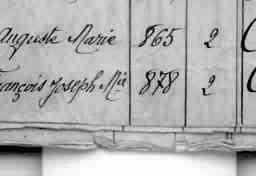 Auguste Marie 865 2
François Joseph Mie 878 2